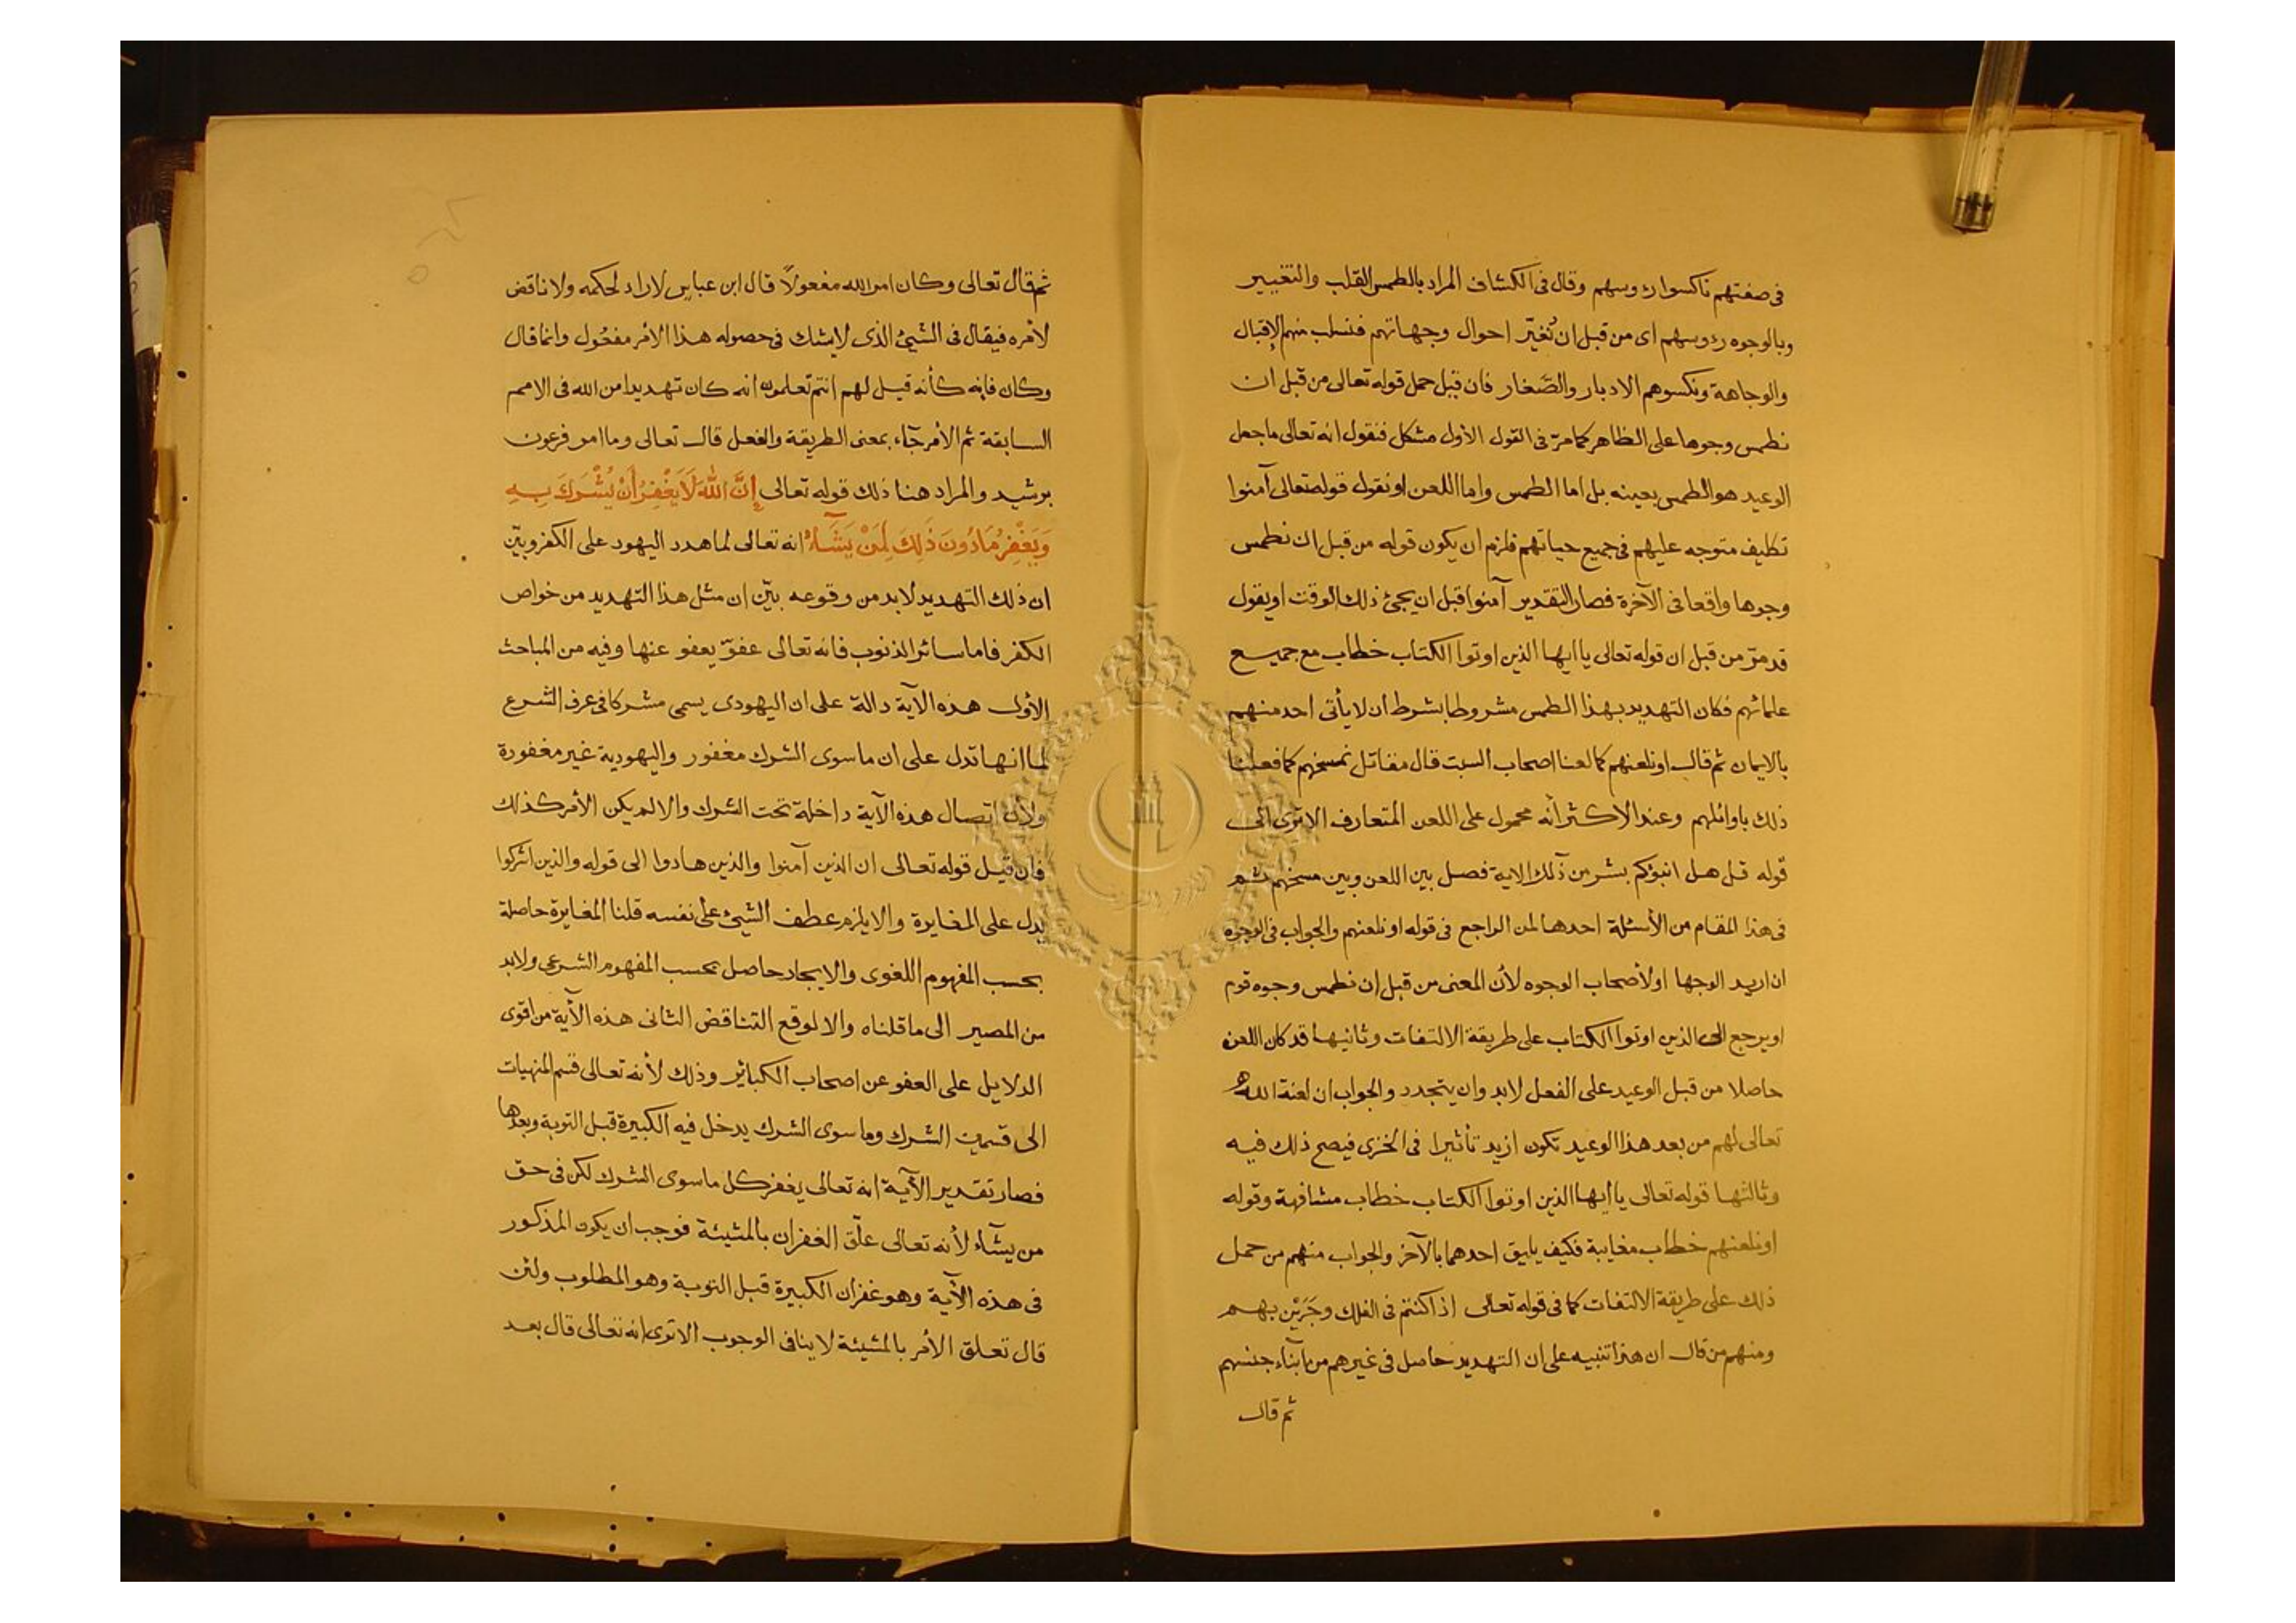 فى صفتهم ناكسوا رءوسهم وقال فى الكشاف المراد بالطمس القلب والتغيير
وبالوجوه رءوسهم اى من قبل ان نُغيّر احوال وجهاتهم فنسلب منهم الإقبال
والوجاهة ونكسوهم الادبار والصَّغار فان قيل حمل قوله تعالى من قبل ان
نطمس وجوها على الظاهر كما مرّ فى القول الأول مشكل فنقول انه تعالى ما جعل
الوعيد هو الطمس بعينه بل اما الطمس واما اللعن او نقول قوله تعالى آمنوا
تكليف متوجه عليهم فى جميع حياتهم فلزم ان يكون قوله من قبل ان نطمس
وجوها واقعا فى الآخرة فصار التقدير آمنوا قبل ان يجئ ذلك الوقت او يقول
قد مرّ من قبل ان قوله تعالى يا ايها الذين اوتوا الكتاب خطاب مع جميع
علمائهم فكان التهديد بهذا الطمس مشروطا بشرط ان لا يأتى احد منهم
بالايمان ثم قال او نلعنهم كما لعنا اصحاب السبت قال مقاتل نمسخهم كما فعلنا
ذلك باوائلهم وعند الاكثر أنه محمول على اللعن المتعارف الا ترى الى
قوله قل هل انبؤكم بشر من ذلك الاية فصل بين اللعن وبين مسخهم ثم
فى هذا المقام من الأسئلة احدها لمن الراجع فى قوله او نلعنهم والجواب فى الوجوه
ان اريد الوجها او لأصحاب الوجوه لأن المعنى من قبل ان نطمس وجوه قوم
او يرجع الى الذين اوتوا الكتاب على طريقة الالتفات وثانيها قد كان اللعن
حاصلا من قبل الوعيد على الفعل لابد وان يتجدد والجواب ان لعنة الله
تعالى لهم من بعد هذا الوعيد تكون ازيد تأثيرا فى الخزى فيصح ذلك فيه
وثالثها قوله تعالى يا ايها الذين اوتوا الكتاب خطاب مشافهة وقوله
او نلعنهم خطاب مغايبة فكيف يليق احدهما بالآخر والجواب منهم من حمل
ذلك على طريقة الالتفات كما فى قوله تعالى اذا كنتم فى الفلك وجَرَيْن بهم
ومنهم من قال ان هذا تنبيه على ان التهديد حاصل فى غيرهم من ابناء جنسهم
ثم قال
ثم قال تعالى وكان امر الله مفعولاً قال ابن عباس لا راد لحكمه ولا ناقض
لأمره فيقال فى الشيئ الذى لا يشك فى حصوله هذا الأمر مفعُول وانما قال
وكان فإنه كأنه قيل لهم انتم تعلمون انه كان تهديدا من الله فى الامم
السابقة ثم الأمر جآء بمعنى الطريقة والفعل قال تعالى وما امر فرعون
برشيد والمراد هنا ذلك قوله تعالى إِنَّ اللَّهَ لَا يَغْفِرُ أَنْ يُشْرَكَ بِهِ
وَيَغْفِرُ مَا دُونَ ذَلِكَ لِمَنْ يَشَآءُ انه تعالى لما هدد اليهود على الكفر وبيّن
ان ذلك التهديد لابد من وقوعه بيّن ان مثل هذا التهديد من خواص
الكفر فاما سائر الذنوب فانه تعالى عفوّ يعفو عنها وفيه من المباحث
الأول هذه الآية دالة على ان اليهودى يسمى مشركا فى عرف الشرع
لما انها تدل على ان ما سوى الشرك مغفور واليهودية غير مغفورة
ولأن اتصال هذه الآية داخلة تحت الشرك والا لم يكن الأمر كذلك
فان قيل قوله تعالى ان الذين آمنوا والذين هادوا الى قوله والذين اشركوا
يدل على المغايرة والا يلزم عطف الشيئ على نفسه قلنا المغايرة حاصلة
بحسب المفهوم اللغوى والايجاد حاصل بحسب المفهوم الشرعى ولابد
من المصير الى ما قلناه والا لوقع التناقض الثانى هذه الآية من اقوى
الدلايل على العفو عن اصحاب الكبائر وذلك لأنه تعالى قسم المنهيات
الى قسمين الشرك وما سوى الشرك يدخل فيه الكبيرة قبل التوبة وبعدها
فصار تقدير الآية انه تعالى يغفر كل ما سوى الشرك لكن فى حق
من يشآء لأنه تعالى علّق الغفران بالمشيئة فوجب ان يكون المذكور
فى هذه الآية وهو غفران الكبيرة قبل التوبة وهو المطلوب ولئن
قال تعلق الأمر بالمشيئة لا ينافى الوجوب الا ترى انه تعالى قال بعد